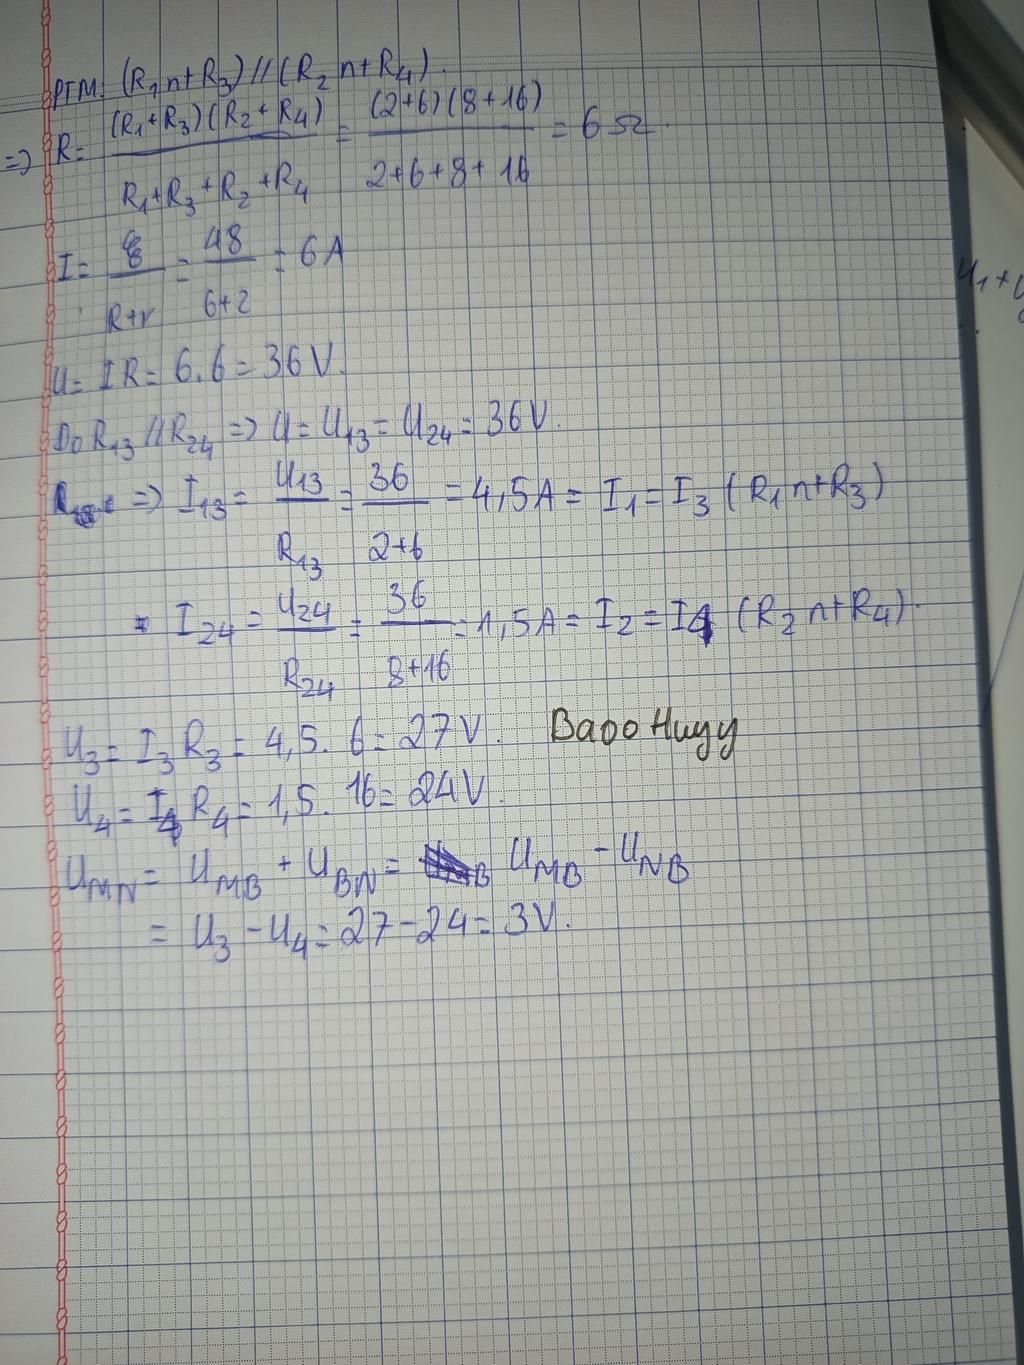 PTM: (R₁ nt R₃) // (R₂ nt R₄).
=> R = (R₁+R₃)(R₂+R₄) / R₁+R₃+R₂+R₄ = (2+6)(8+16) / 2+6+8+16 = 6Ω.
I = ℰ / R+r = 48 / 6+2 = 6A
U = IR = 6.6 = 36V.
Do R₁₃ // R₂₄ => U = U₁₃ = U₂₄ = 36V.
=> I₁₃ = U₁₃ / R₁₃ = 36 / 2+6 = 4,5A = I₁ = I₃ (R₁ nt R₃)
I₂₄ = U₂₄ / R₂₄ = 36 / 8+16 = 1,5A = I₂ = I₄ (R₂ nt R₄).
U₃ = I₃R₃ = 4,5. 6 = 27V. Bảo Huy
U₄ = I₄R₄ = 1,5. 16 = 24V.
U_MN = U_MB + U_BN = U_MB - U_NB
= U₃ - U₄ = 27 - 24 = 3V.